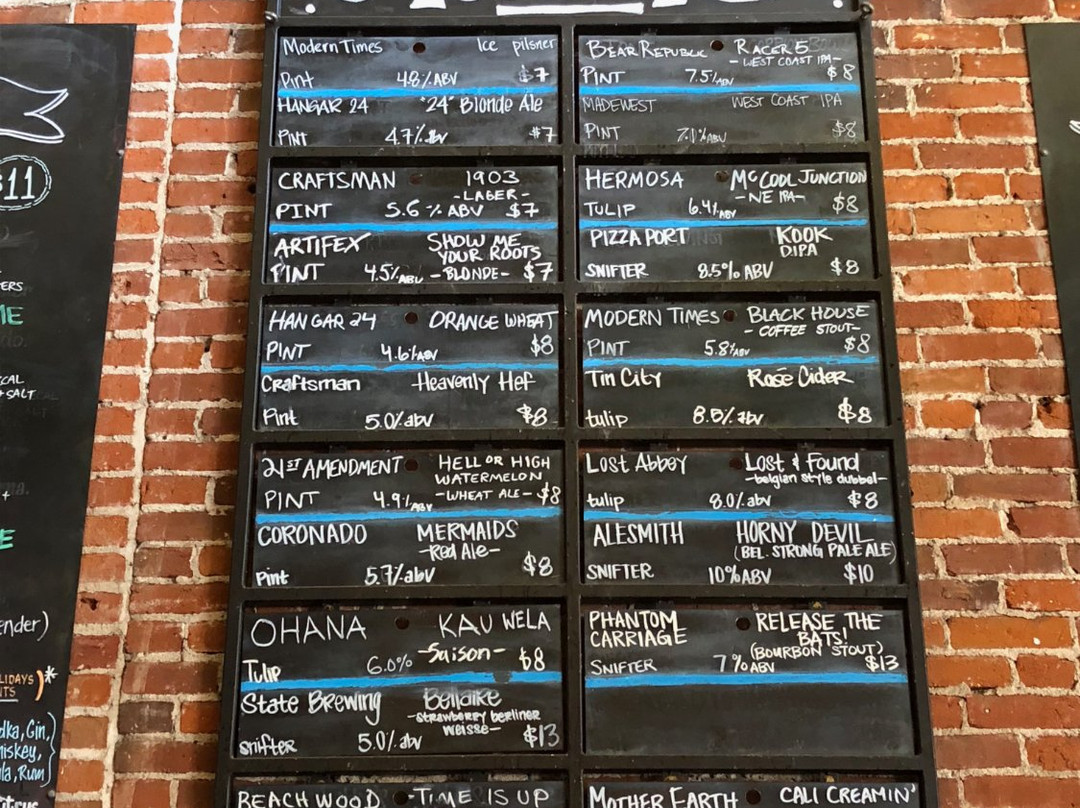 $11
ERS
ME
CAL
+ SALT
+
E
ender)
LIDAYS
NTS )*
dka, Gin,
hiskey,
la, Rum)
Modern Times Ice pilsner
Pint 4.8% ABV $7
HANGAR 24 "24" Blonde Ale
PINT 4.7% abv $7
CRAFTSMAN 1903
-LAGER-
PINT 5.6% ABV $7
ARTIFEX SHOW ME
YOUR ROOTS
PINT 4.5% ABV -BLONDE- $7
HANGAR 24 ORANGE WHEAT
PINT 4.6% ABV $8
Craftsman Heavenly Hef
Pint 5.0% abv $8
21ST AMENDMENT HELL OR HIGH
WATERMELON
PINT 4.9% ABV -WHEAT ALE- $8
CORONADO MERMAIDS
-Red Ale-
Pint 5.7% abv $8
OHANA KAU WELA
Tulip 6.0% -Saison- $8
State Brewing Bellaire
-strawberry berliner
weisse-
snifter 5.0% abv $13
BEACHWOOD TIME IS UP
BEAR REPUBLIC RACER 5
-WEST COAST IPA-
PINT 7.5% ABV $8
MADEWEST WEST COAST IPA
PINT 7.0% ABV $8
HERMOSA McCOOL JUNCTION
-NE IPA-
TULIP 6.4% ABV $8
PIZZA PORT KOOK
DIPA
SNIFTER 8.5% ABV $8
MODERN TIMES BLACK HOUSE
-COFFEE STOUT-
PINT 5.8% ABV $8
Tin City Rosé Cider
tulip 8.5% abv $8
Lost Abbey Lost & Found
-belgian style dubbel-
tulip 8.0% abv $8
ALESMITH HORNY DEVIL
(BEL. STRONG PALE ALE)
SNIFTER 10% ABV $10
PHANTOM RELEASE THE
CARRIAGE BATS!
(BOURBON STOUT)
SNIFTER 7% ABV $13
MOTHER EARTH CALI CREAMIN'